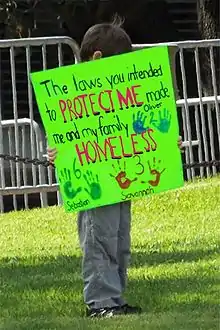 The laws you intended
to PROTECT ME made
me and my family Oliver
HOMELESS 2
6 3
Sebastian Savannah